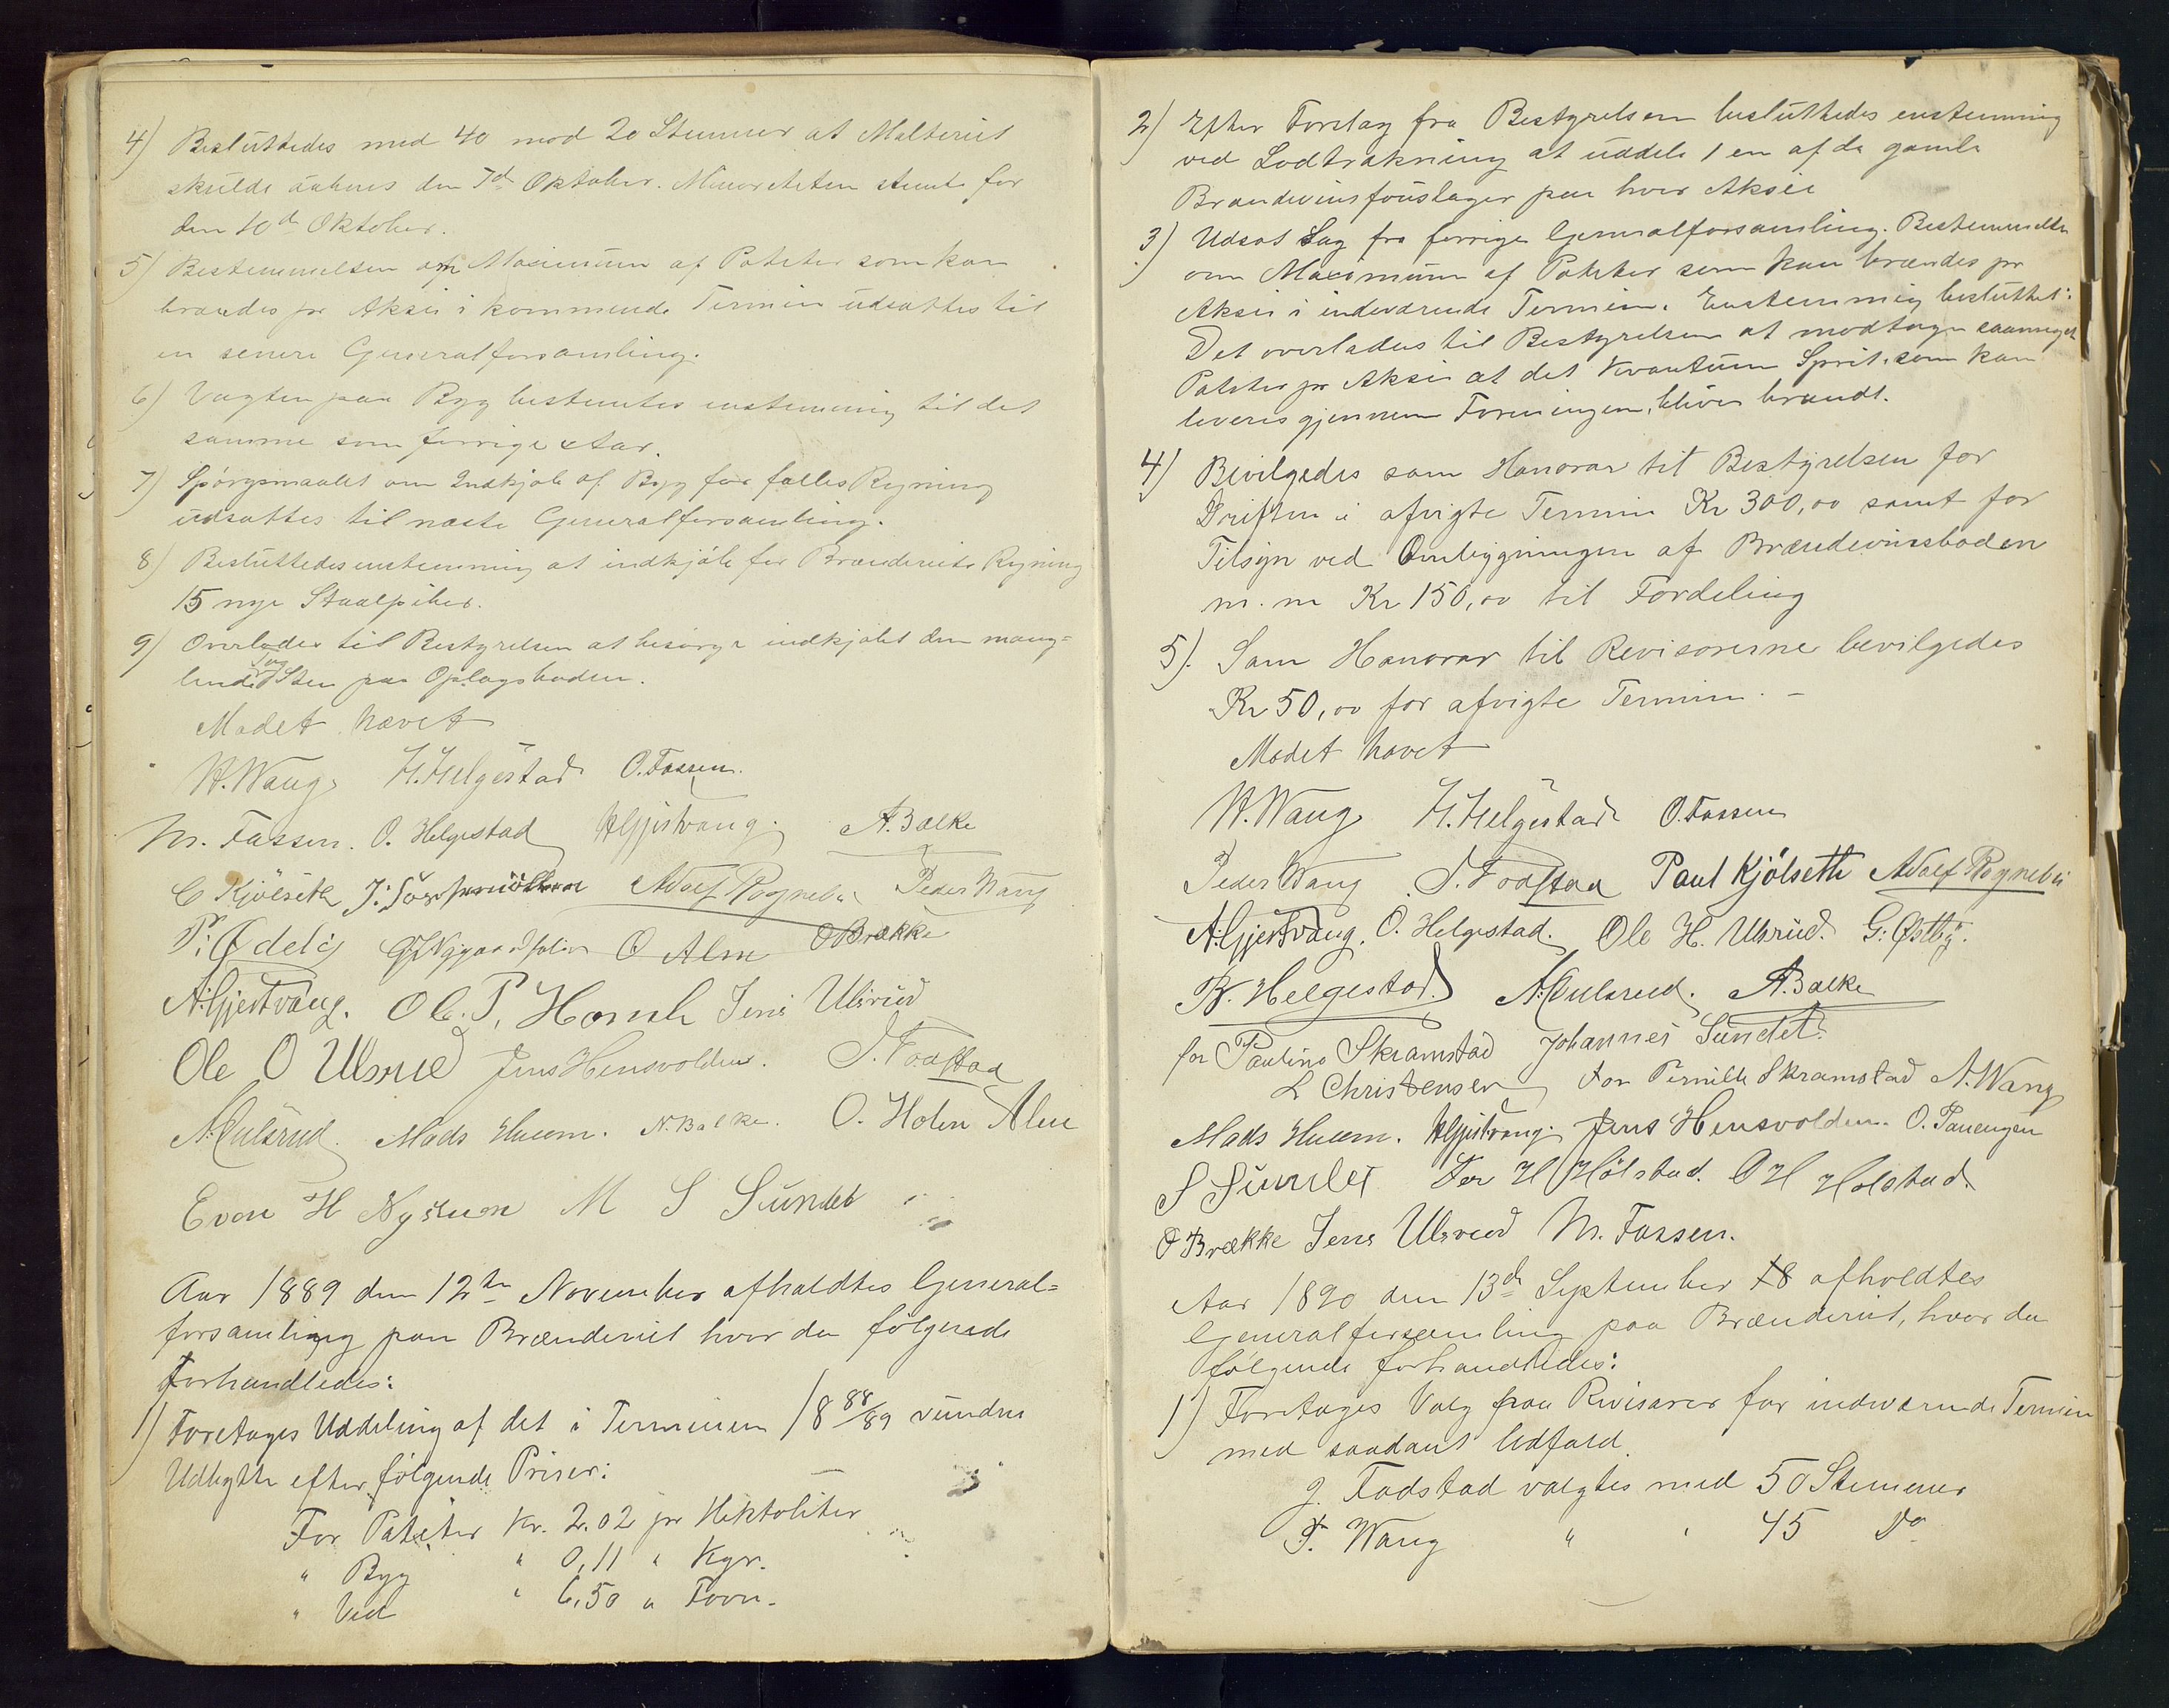 4) Besluttedes med 40 mod 20 Stemmer at Malteriet
skulde aabnes den 7de Oktober. Minoriteten stemte for
den 10de Oktober.
5) Bestemmelsen om Maximum af Poteter som kan
brændes pr Aksie i kommende Termin udsattes til
en senere Generalforsamling.
6) Vægten paa Byg bestemtes enstemmig til det
samme som forrige Aar.
7) Spörgsmaalet om Indkjöb af Byg for fælles Regning
udsattes til næste Generalforsamling.
8) Besluttedes enstemmig at indkjöbe for Brænderiets Regning
15 nye Staalpiber.
9) Overlodes til Bestyrelsen at besörge indkjöbt den mang=
lende Tag Sten paa Oplagsboden.
Mödet hævet
H. Wang H. Helgestad O. Fossen.
M. Fossen. O. Helgestad A Gjestvang. A. Balke
C Kjölseth J: Adolf Rogneby Peder Wang
P: Ødeby O Alm O Brække
A. Gjestvang. Ole. P, Jens Ulsrud
Ole O Ulsrud Jens Hensvolden. J. Fodstad
A. Eulsrud. Mads Huem. N. Balke. O. Holen Alm
Even H Nyhuen M S Sundet
Aar 1889 den 12te November afholdtes General=
forsamling paa Brænderiet hvor da fölgende
forhandledes:
1) Foretoges Uddeling af det i Terminen 1888/89 vundne
Udbytte efter fölgende Priser:
For Poteter Kr. 2.02 pr Hektoliter
" Byg " 0,11 " Kgr.
" Ved " 6,50 " Favn.
2) Efter Forslag fra Bestyrelsen besluttedes enstemmig
ved Lodtrækning at uddele 1 en af de gamle
Brændevinsfoustager paa hver Aksie
3) Udsat Sag fra forrige Generalforsamling. Bestemmelse
om Maximum af Poteter som kan brændes pr
Aksie i indeværende Termin. Enstemmig besluttet:
Det overlades til Bestyrelsen at modtage saameget
Poteter pr Aksie at det Kvantum Sprit, som kan
leveres gjennem Foreningen, bliver brændt.
4) Bevilgedes som Honorar til Bestyrelsen for
Driften i afvigte Termin Kr 300,00 samt for
Tilsyn ved Ombygningen af Brændevinsboden
m. m Kr 150,00 til Fordeling
5). Som Honorar til Revisorerne bevilgedes
Kr 50,00 for afvigte Termin. -
Mödet hævet
H. Wang H. Helgestad O. Fossen
Peder Wang J. Fodstad Paul Kjölseth Adolf Rogneby
A. Gjestvang. O. Helgestad. Ole H. Ulsrud. G: Østby.
B. Helgestad. A. Eulsrud. A. Balke
for Pauline Skramstad Johannes Sundet.
L Christensen for Pernille Skramstad A. Wang
Mads Huem. A Gjestvang. Jens Hensvolden. O. Panengen
S Sundet For H Hölstad. O H Holstad.
O Brække Jens Ulsrud M. Fossen.
Aar 1890 den 13de September 18 afholdtes
Generalforsamling paa Brænderiet, hvor da
fölgende forhandledes:
1) Foretoges Valg paa Revisorer for indeværende Termin
med saadant Udfald.
J. Fodstad valgtes med 50 Stemmer
P. Wang " " 45 Do